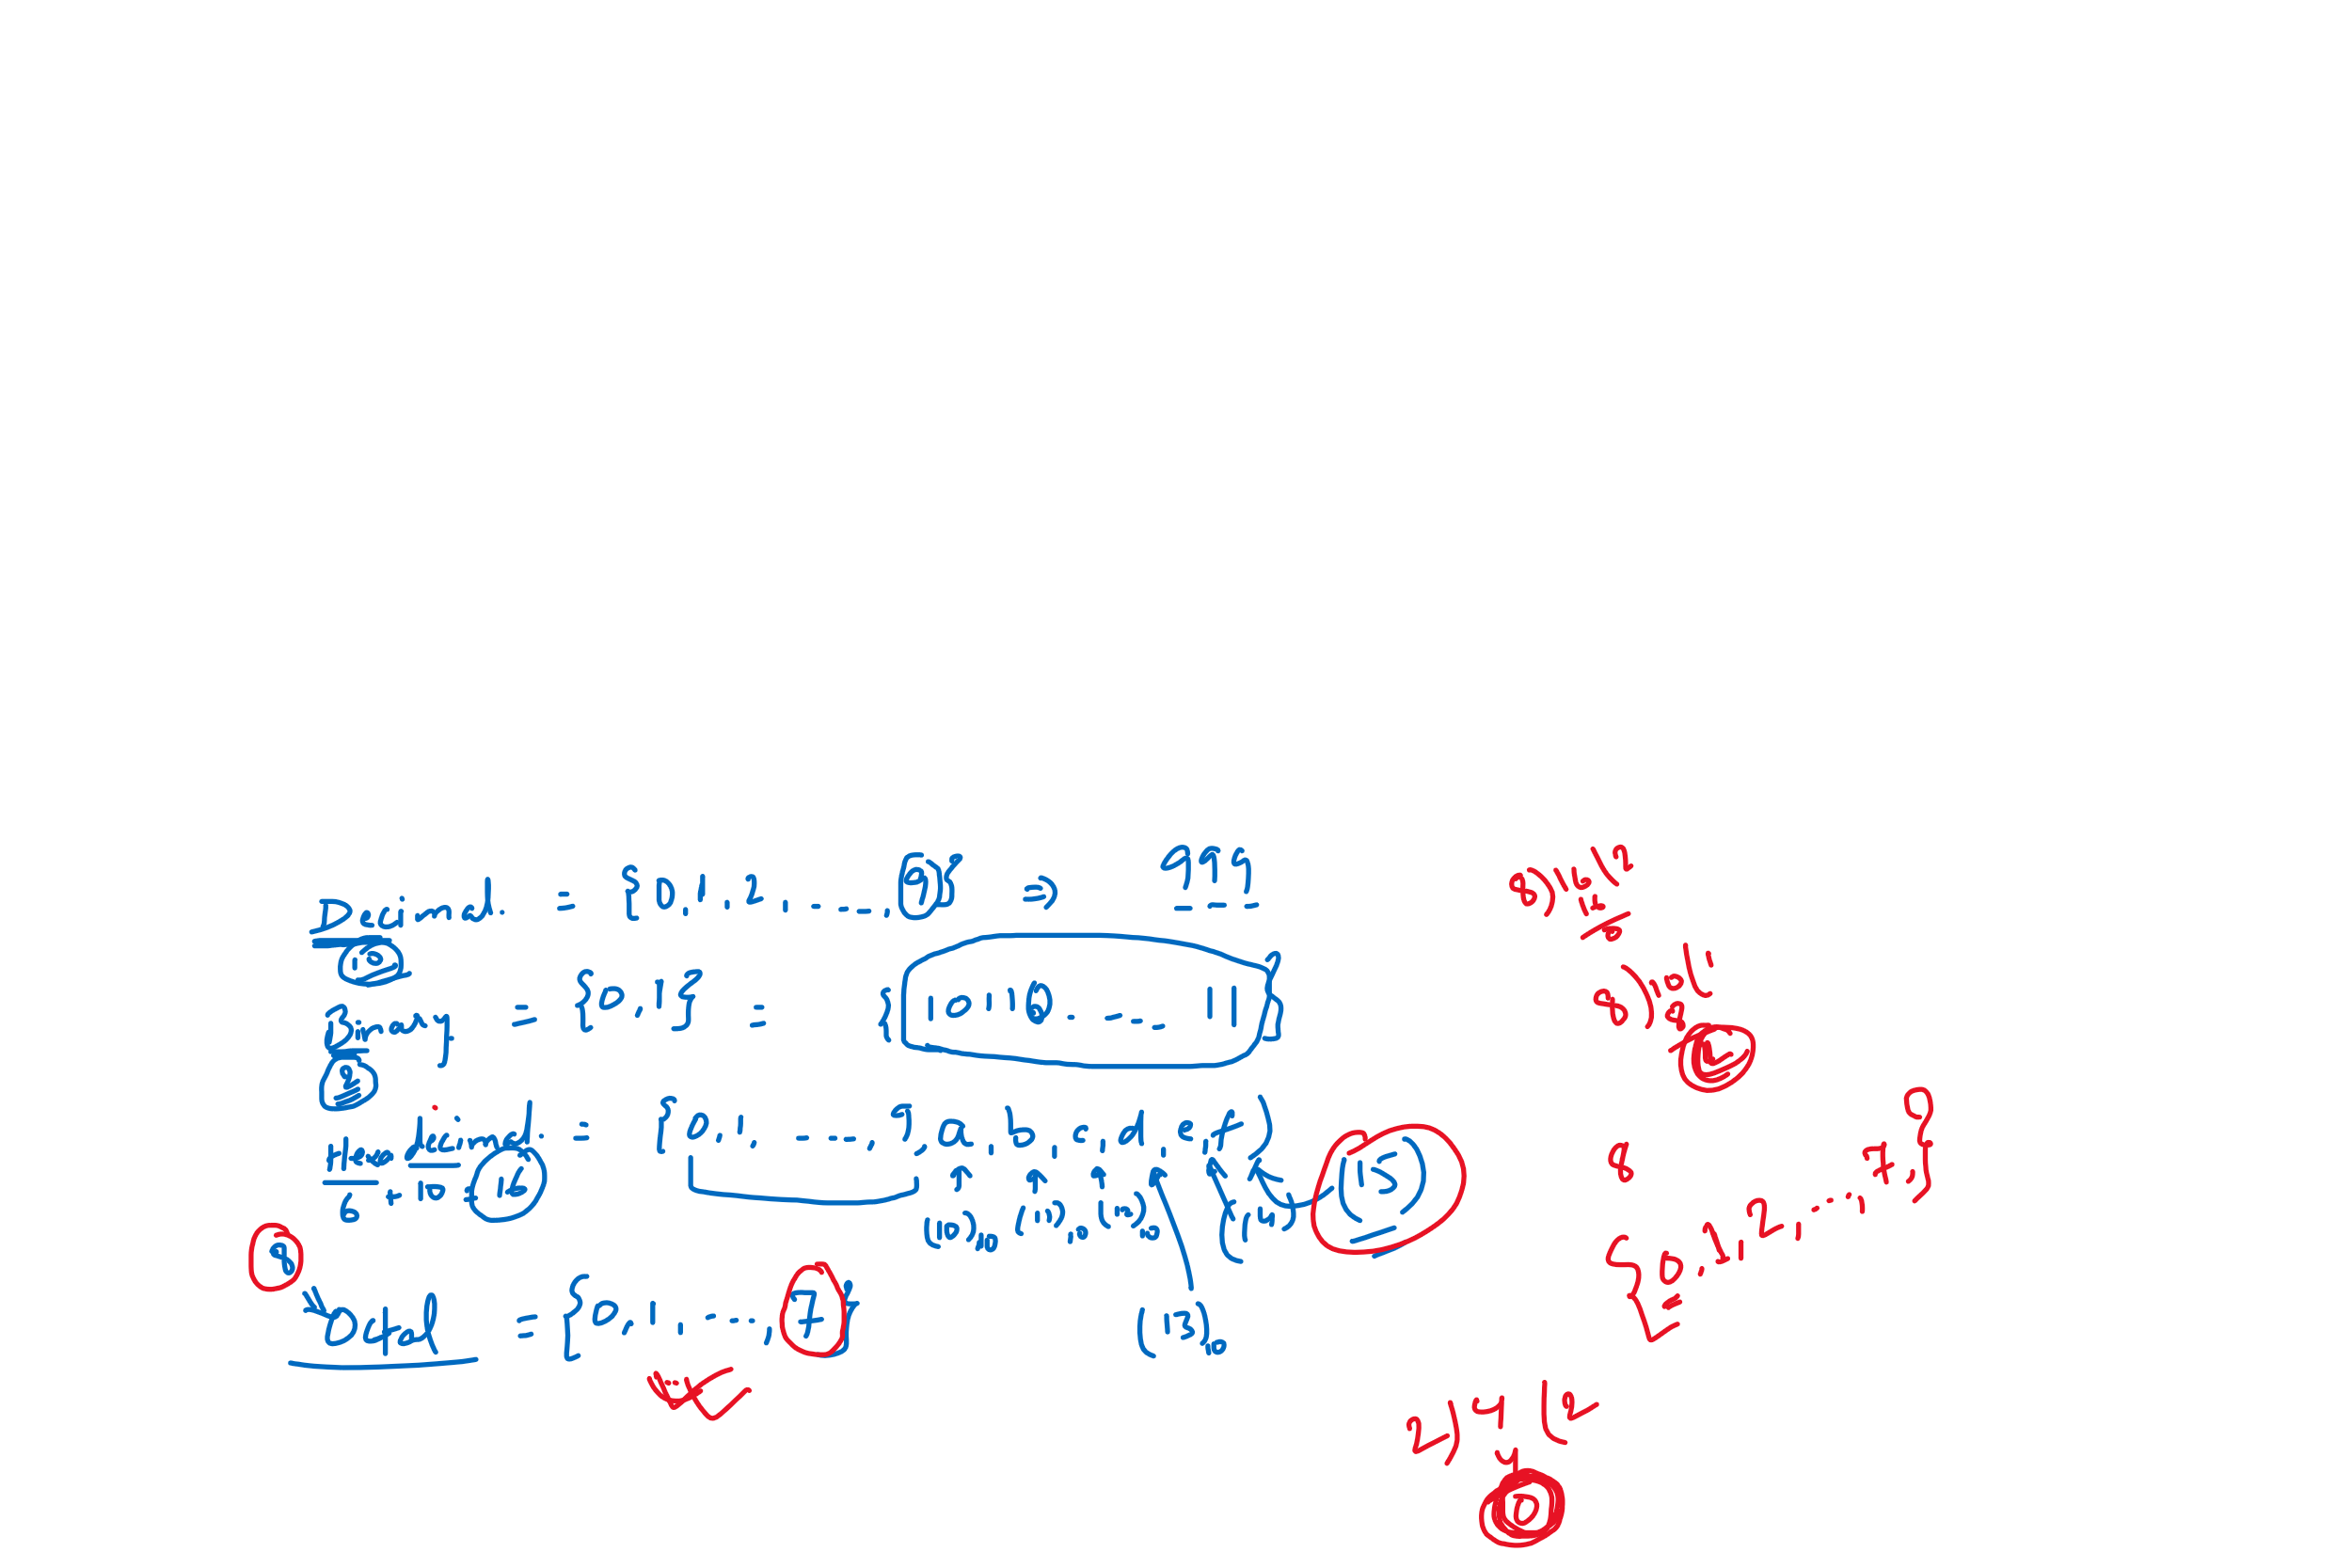 Decimal. = {0,1,2,----,9} ⇒ 999
10
Binary = {0,1} = {10110....11}
2
Hexadecimal. = {0,1,----,9,a,b,c,d,e,f}
6 + 10 = 16
(10)10 (11)10 (12)10 (14) (15)
8
(13)10
Octal = {0,1,---,7}
8)16(2
16
0
8)10(1
8
2
9
{0,1,2,...,9}
2)4(2
4
0